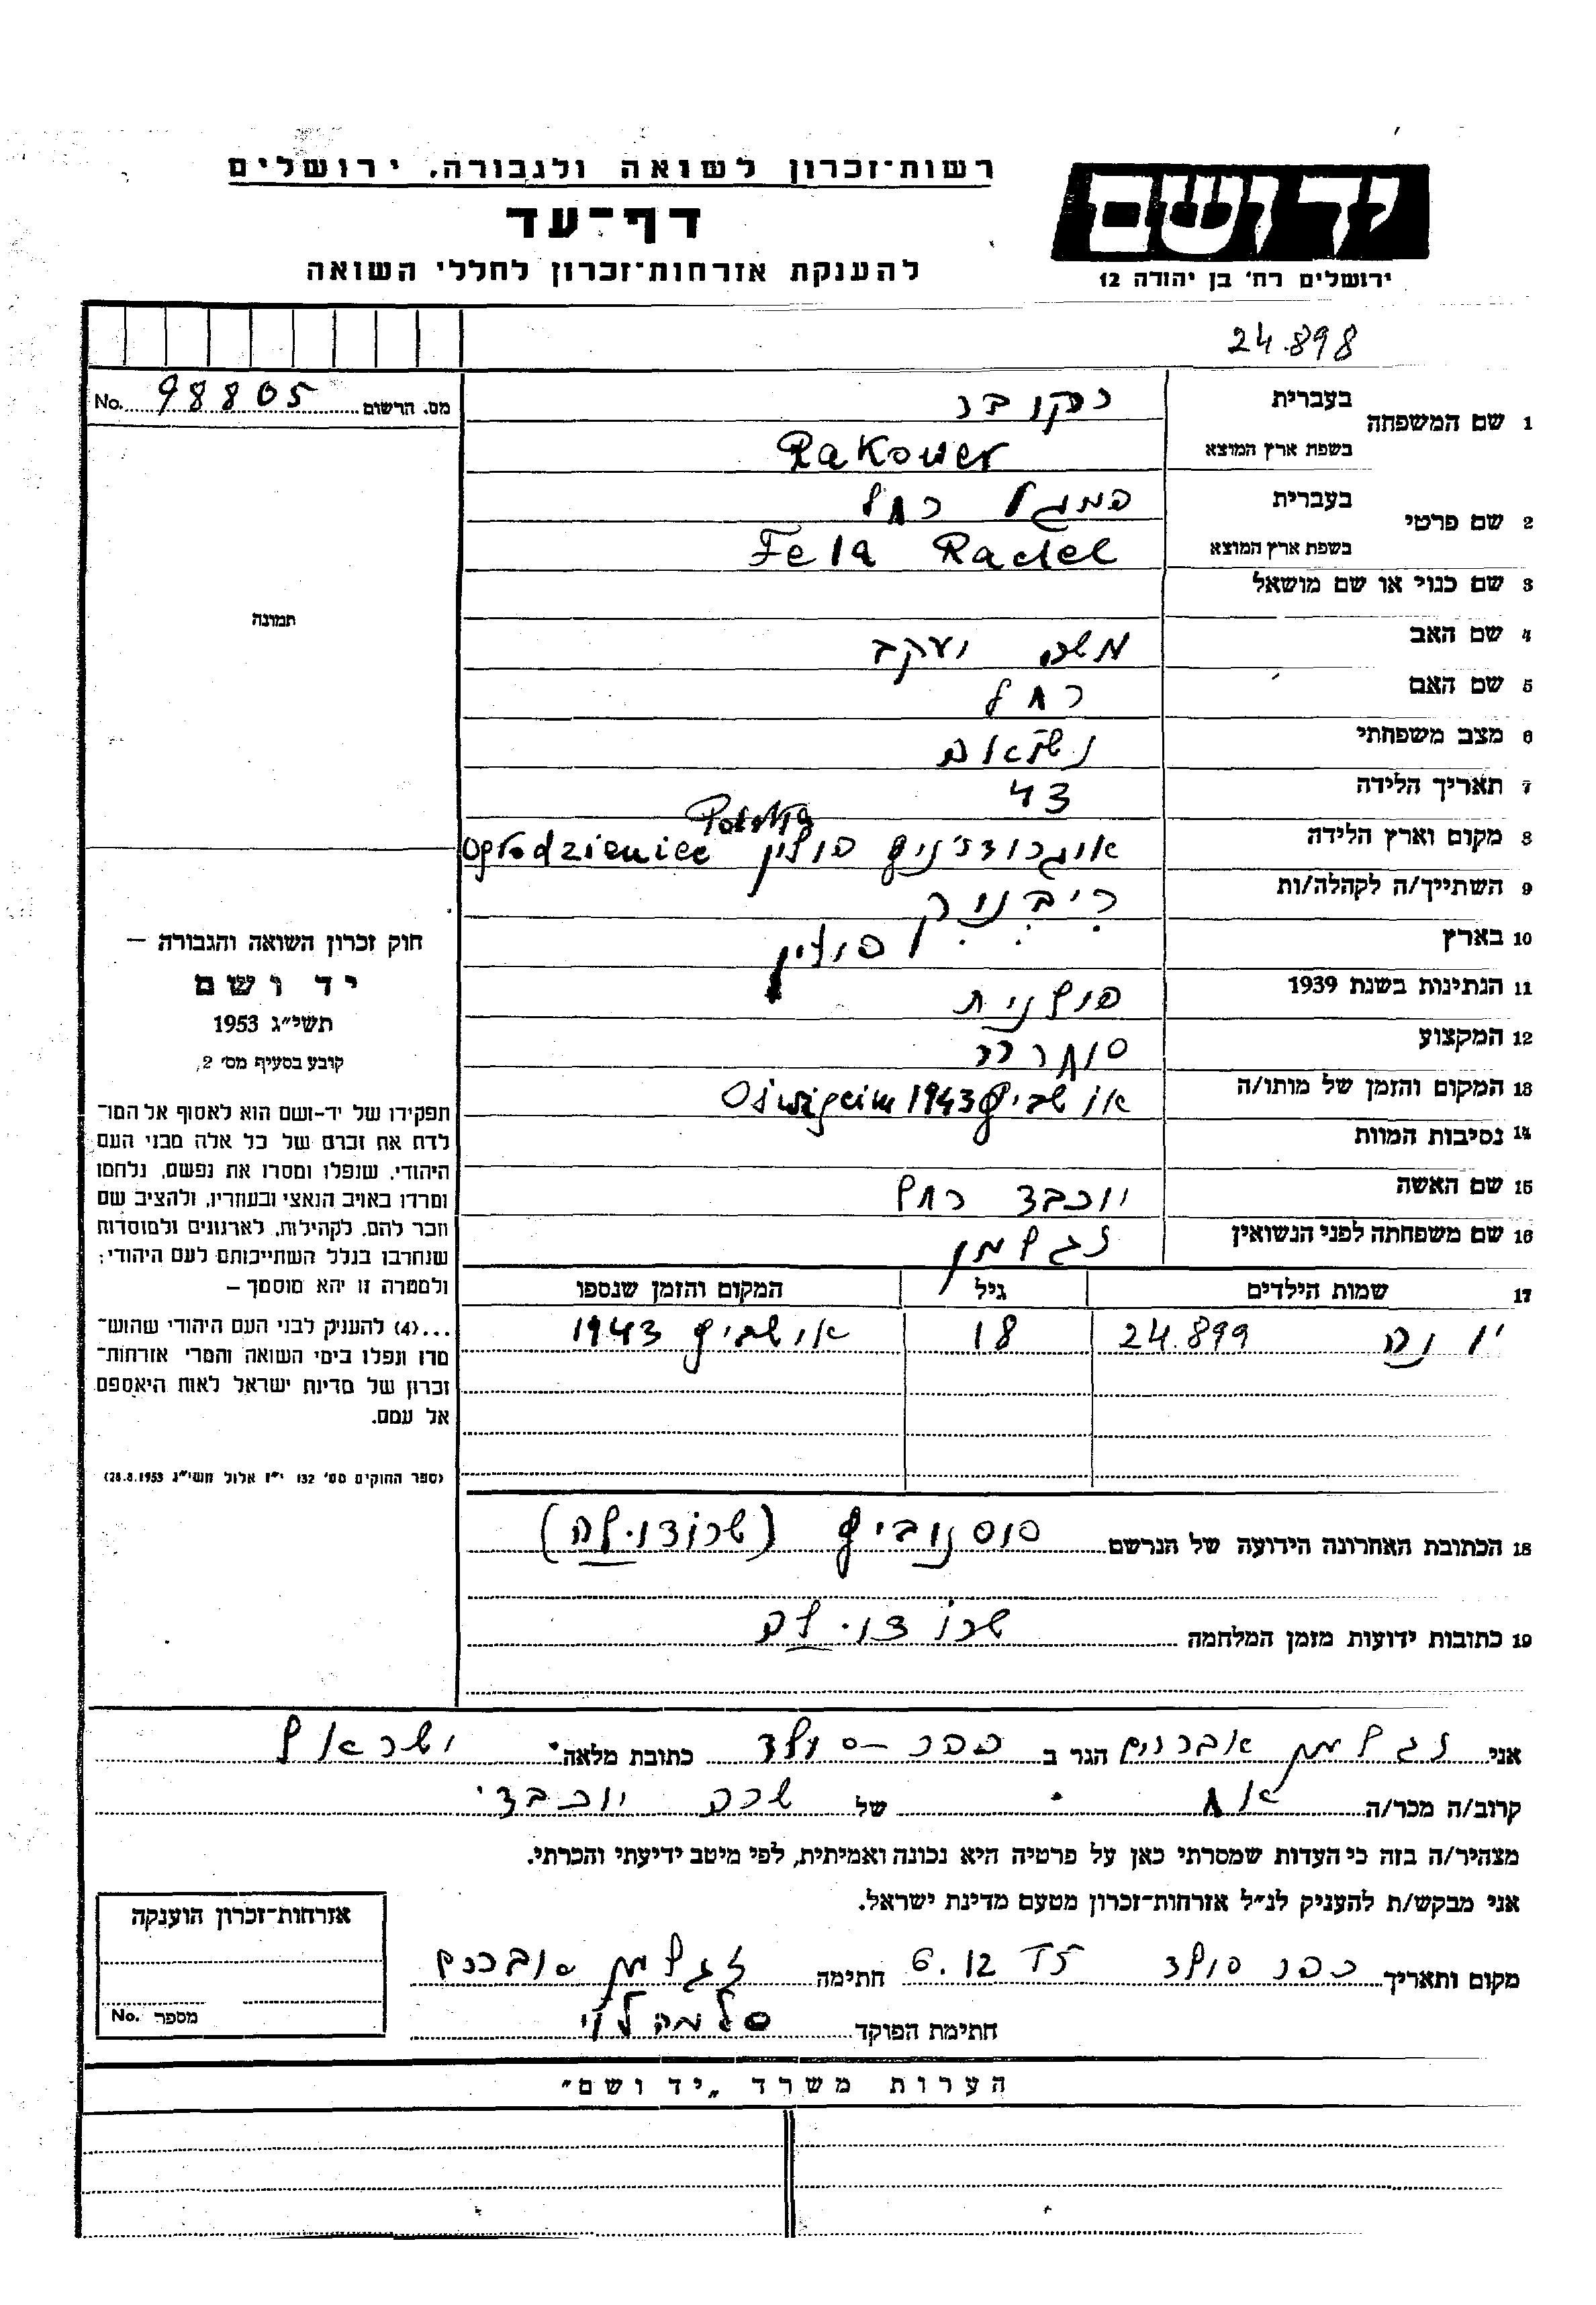 רשות־זכרון לשואה ולגבורה, ירושלים
דף־עד
להענקת אזרחות־זכרון לחללי השואה
יד ושם
ירושלים רח׳ בן יהודה 12
24.898
מס. הרשום 98805 No.
1 שם המשפחה בעברית רקובר
בשפת ארץ המוצא Rakower
2 שם פרטי בעברית רחל
בשפת ארץ המוצא Fela
3 שם כנוי או שם מושאל
4 שם האב משה יעקב
5 שם האם רחל
6 מצב משפחתי
7 תאריך הלידה 43
8 מקום וארץ הלידה פולין Ogrodzieniec
9 השתייך/ה לקהלה/ות
10 בארץ פולין
11 הנתינות בשנת 1939 פולנית
12 המקצוע
13 המקום והזמן של מותו/ה אושביץ 1943
14 נסיבות המוות
15 שם האשה יוכבד רחל
16 שם משפחתה לפני הנשואין זגלמן
17 שמות הילדים גיל המקום והזמן שנספו
יונה 24.899 18 אושביץ 1943
18 הכתובת האחרונה הידועה של הנרשם סוסנוביץ (שרודולה)
19 כתובות ידועות מזמן המלחמה שרודולה
תמונה
חוק זכרון השואה והגבורה —
יד ושם
תשי״ג 1953
קובע בסעיף מס׳ 2,
תפקידו של יד-ושם הוא לאסוף אל המו־
לדת את זכרם של כל אלה מבני העם
היהודי, שנפלו ומסרו את נפשם, נלחמו
ומרדו באויב הנאצי ובעוזריו, ולהציב שם
וזכר להם, לקהילות, לארגונים ולמוסדות
שנחרבו בגלל השתייכותם לעם היהודי;
ולמטרה זו יהא מוסמך —
...(4) להעניק לבני העם היהודי שהוש־
מדו ונפלו בימי השואה והמרי אזרחות־
זכרון של מדינת ישראל לאות היאספם
אל עמם.
(ספר החוקים מס׳ 132 י״ז אלול תשי״ג 28.8.1953)
אני זגלמן אברהם הגר ב כפר-סולד כתובת מלאה ישראל
קרוב/ה מכר/ה אח של שרה יוכבד
מצהיר/ה בזה כי העדות שמסרתי כאן על פרטיה היא נכונה ואמיתית, לפי מיטב ידיעתי והכרתי.
אני מבקש/ת להעניק לנ״ל אזרחות־זכרון מטעם מדינת ישראל.
מקום ותאריך כפר סולד 6.12 חתימה זגלמן אברהם
חתימת הפוקד סלמה לוי
אזרחות־זכרון הוענקה
מספר No.
הערות משרד „יד ושם״